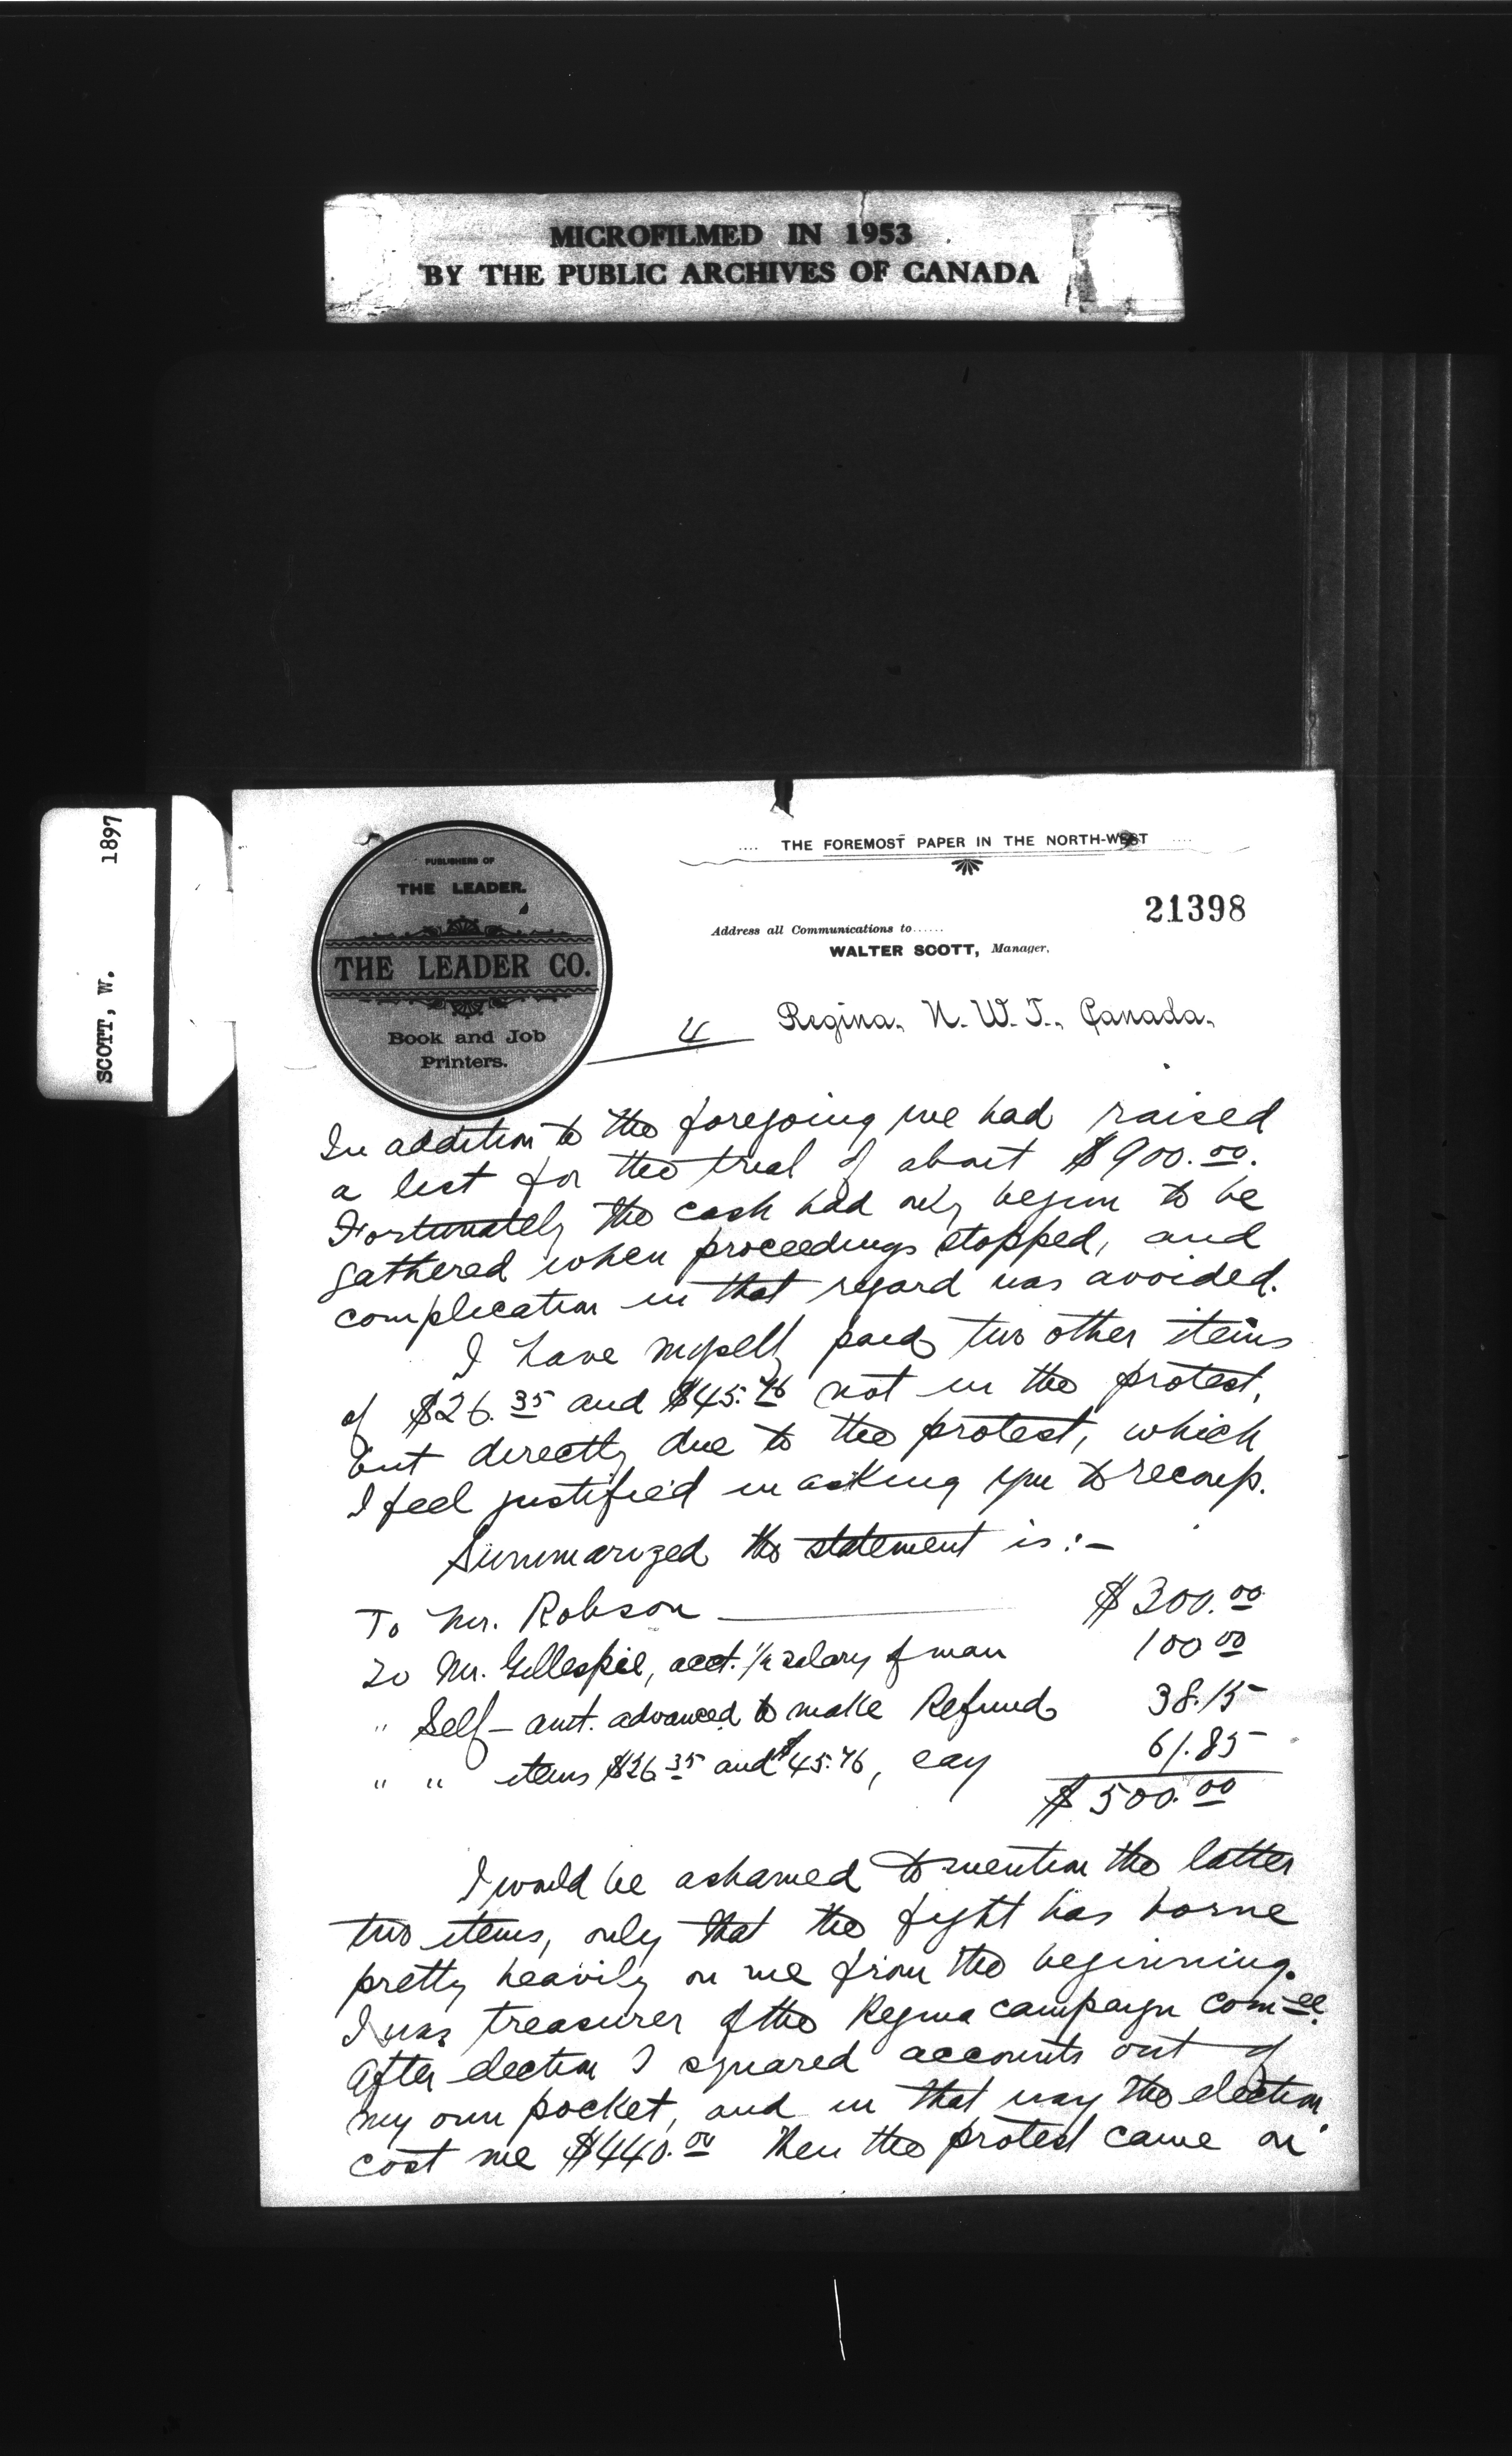 MICROFILMED IN 1953
BY THE PUBLIC ARCHIVES OF CANADA
SCOTT, W. 1897
PUBLISHERS OF
THE LEADER.
THE LEADER CO.
Book and Job
Printers.
.... THE FOREMOST PAPER IN THE NORTH-WEST ....
21398
Address all Communications to......
WALTER SCOTT, Manager.
4
Regina, N. W. T., Canada,
In addition to the foregoing we had raised
a list for the trial of about $900.00.
Fortunately the cash had only begun to be
gathered when proceedings stopped, and
complication in that regard was avoided.
I have myself paid two other items
of $26.35 and $45.76 not in the protest,
but directly due to the protest, which
I feel justified in asking you to recoup.
Summarized the statement is:—
To Mr. Robson $300.00
To Mr. Gillespie, acct. 1/2 salary of man 100 00
" Self — amt. advanced to make Refund 38.15
" " items $26.35 and $45.76, say 61.85
$500.00
I would be ashamed to mention the latter
two items, only that the fight has borne
pretty heavily on me from the beginning.
I was treasurer of the Regina campaign comee.
After election I squared accounts out of
my own pocket, and in that way the election
cost me $440.00 Then the protest came on